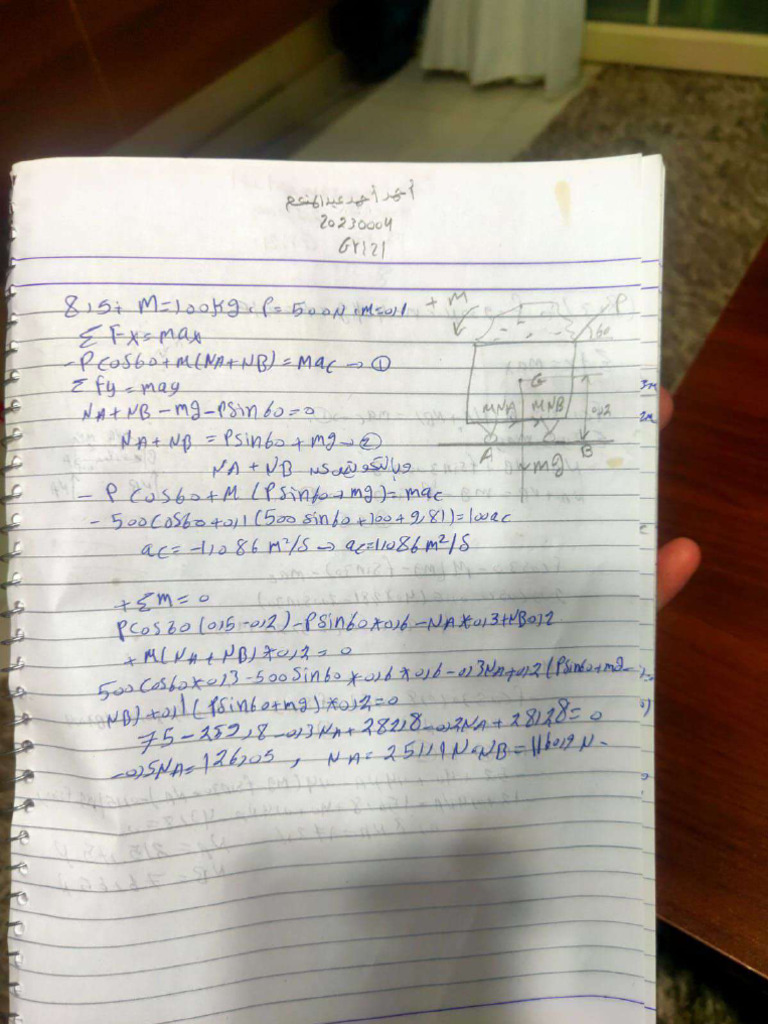 أحمد أحمد عبدالمنعم
20230004
GY121
8,5: M=100kg, P=500N, M=0,1
ΣFx=max
-Pcos60+M(NA+NB)=mac→①
Σfy=may
NA+NB-mg-Psin60=0
NA+NB=Psin60+mg→②
NA+NB
-Pcos60+M(Psin60+mg)=mac
-500cos60+0,1(500sin60+100+9,81)=100ac
ac=-1,1086m²/s→ac=1,1086m²/s
+Σm=0
Pcos60(0,5-0,2)-Psin60*0,6-NA*0,3+NB0,2
+M(NA+NB)*0,2=0
500cos60*0,3-500sin60*0,6*0,6-0,3NA+0,2(Psin60+mg-
NB)+0,1(Psin60+mg)*0,2=0
75-259,8-0,3NA+282,8-0,2NA+28,28=0
-0,5NA=126,05, NA=251,19N,NB=1160,9N
+M
P
60
G
MNA
MNB
0,2
A
mg
B